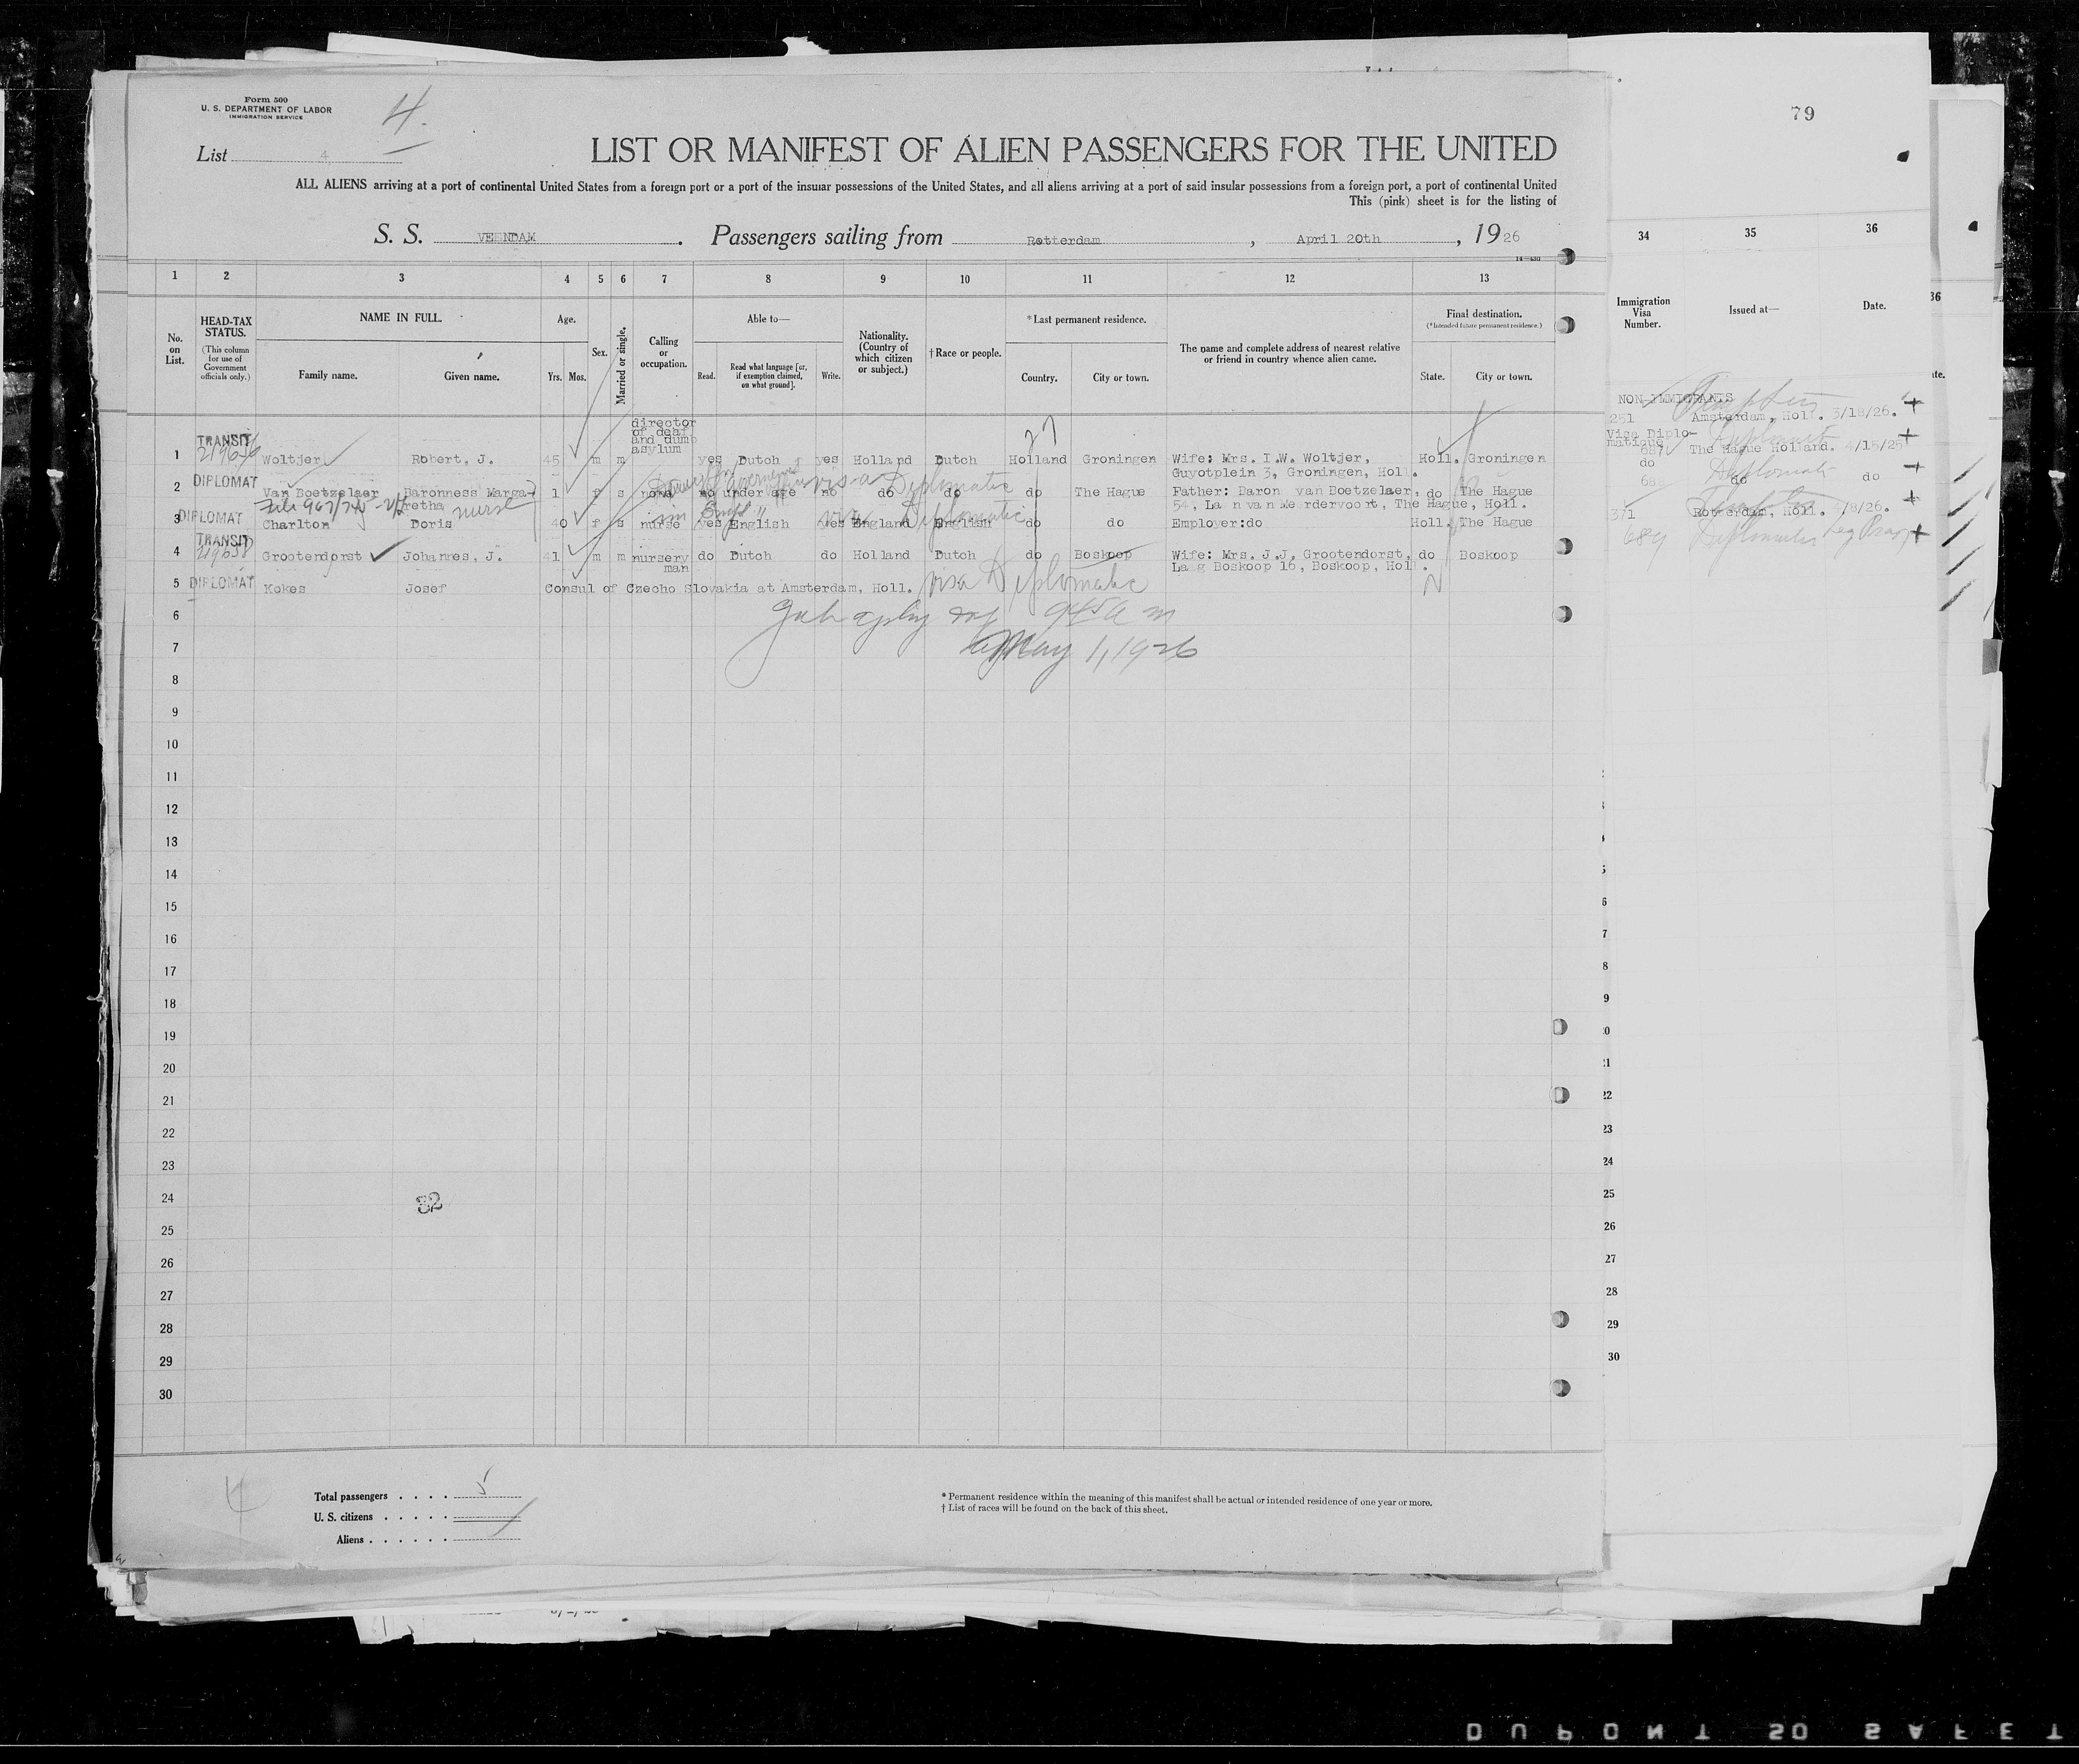 Form 500
U. S. DEPARTMENT OF LABOR
IMMIGRATION SERVICE
4.
79
List 4
LIST OR MANIFEST OF ALIEN PASSENGERS FOR THE UNITED
ALL ALIENS arriving at a port of continental United States from a foreign port or a port of the insular possessions of the United States, and all aliens arriving at a port of said insular possessions from a foreign port, a port of continental United
This (pink) sheet is for the listing of
S. S. VEENDAM. Passengers sailing from Rotterdam, April 20th, 1926
1 2 3 4 5 6 7 8 9 10 11 12 13 34 35 36
No. on List.
HEAD-TAX STATUS.
(This column for use of Government officials only.)
NAME IN FULL.
Family name. Given name.
Age.
Yrs. Mos.
Sex.
Married or single.
Calling or occupation.
Able to—
Read. Read what language [or, if exemption claimed, on what ground]. Write.
Nationality. (Country of which citizen or subject.)
†Race or people.
*Last permanent residence.
Country. City or town.
The name and complete address of nearest relative or friend in country whence alien came.
Final destination.
(*Intended future permanent residence.)
State. City or town.
Immigration Visa Number.
Issued at—
Date.
NON-IMMIGRANTS
director of deaf and dumb asylum
1 TRANSIT Woltjer Robert, J. 45 m m yes Dutch yes Holland Dutch Holland Groningen Wife: Mrs. I.W. Woltjer, Holl. Groningen
Guyotplein 3, Groningen, Holl.
251 Amsterdam, Holl. 3/18/26.
2 DIPLOMAT Van Boetzelaer Baronness Margaretha 1 f s none no under age no do do do The Hague Father: Baron van Boetzelaer, do The Hague
54, Laan van Meerdervoort, The Hague, Holl.
Visa Diplomatique 687 The Hague Holland. 4/15/25
visa Diplomatic
nurse
3 DIPLOMAT Charlton Doris 40 f s nurse yes English yes England English do do Employer: do Holl. The Hague
do 688 do do
Diplomatic
4 TRANSIT Grootendorst Johannes, J. 41 m m nursery man do Dutch do Holland Dutch do Boskoop Wife: Mrs. J.J. Grootendorst, do Boskoop
Laag Boskoop 16, Boskoop, Holl.
371 Rotterdam, Holl. 4/8/26.
5 DIPLOMAT Kokes Josef Consul of Czecho Slovakia at Amsterdam, Holl. visa Diplomatic
689
6
7 May 1, 1926
8
9
10
11
12
13
14
15
16
17
18
19
20
21
22
23
24
32
25
26
27
28
29
30
Total passengers . . . . 5
U. S. citizens . . . . .
Aliens . . . . . .
* Permanent residence within the meaning of this manifest shall be actual or intended residence of one year or more.
† List of races will be found on the back of this sheet.
DUPONT 50 SAFET